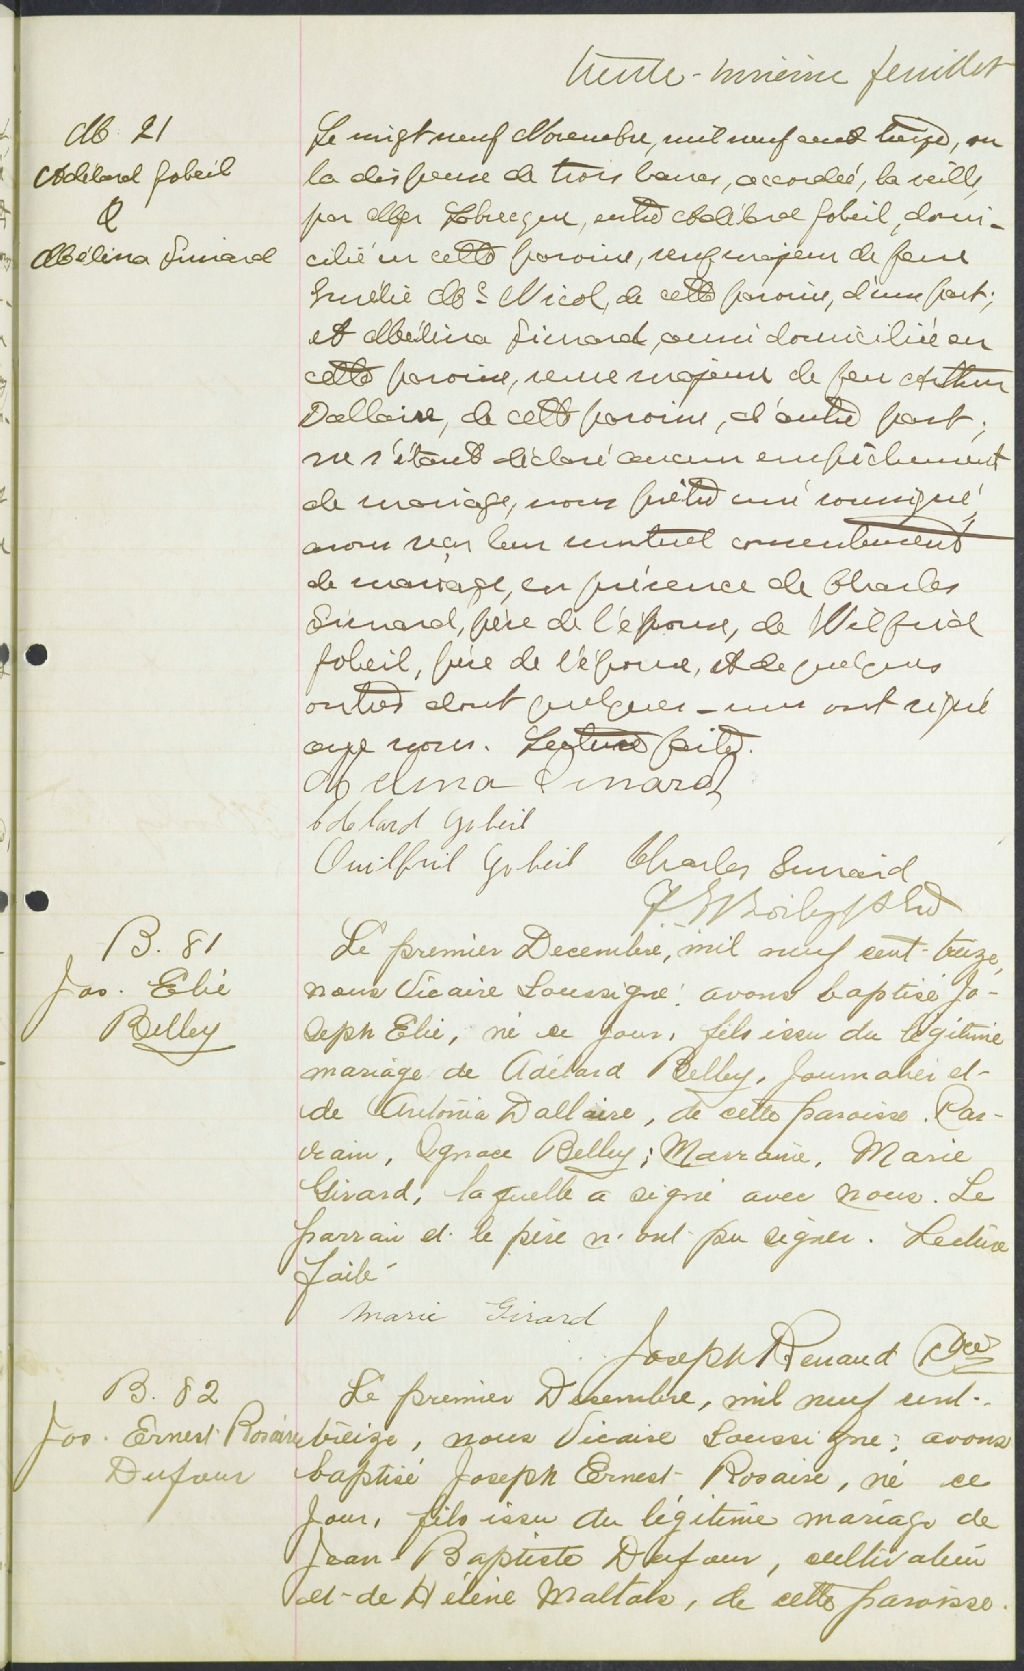 trente-onzième feuillet
M. 21
Adélard Gobeil
&
Mélina Simard
Le vingt neuf Novembre, mil neuf cent treize, vu
la dispense de trois bancs, accordée, la veille,
par Mgr Labrecque, entre Adélard Gobeil, domi-
cilié en cette paroisse, veuf majeur de feue
Emélie Mc Nicol, de cette paroisse, d'une part;
et Mélina Simard, aussi domiciliée en
cette paroisse, veuve majeure de feu Arthur
Dallaire, de cette paroisse, d'autre part;
ne s'étant déclaré aucun empêchement
de mariage, nous prêtre curé soussigné,
avons reçu leur mutuel consentement
de mariage, en présence de Charles
Simard, père de l'épouse, de Wilfrid
Gobeil, père de l'épouse, et de quelques
autres dont quelques-uns ont signé
avec nous. Lecture faite.
Melina Simard
Adelard Gobeil
Ouilfril Gobeil Charles Simard
B. 81
Jos. Elie
Belley
Le premier Decembre, mil neuf cent-treize,
nous Vicaire Soussigné, avons baptisé Jo-
seph Elie, né ce jour, fils issu du légitime
mariage de Adélard Belley, Journalier et
de Antonia Dallaire, de cette paroisse. Par-
rain, Ignace Belley; Marraine, Marie
Girard, laquelle a signé avec nous. Le
parrain et le père n'ont pu signer. Lecture
faite
Marie Girard
Joseph Renaud Ptre
B. 82
Jos. Ernest Rosaire
Dufour
Le premier Decembre, mil neuf cent-
treize, nous Vicaire Soussigné, avons
baptisé Joseph Ernest Rosaire, né ce
Jour, fils issu du légitime mariage de
Jean-Baptiste Dufour, cultivateur
et de Hélène Maltais, de cette paroisse.